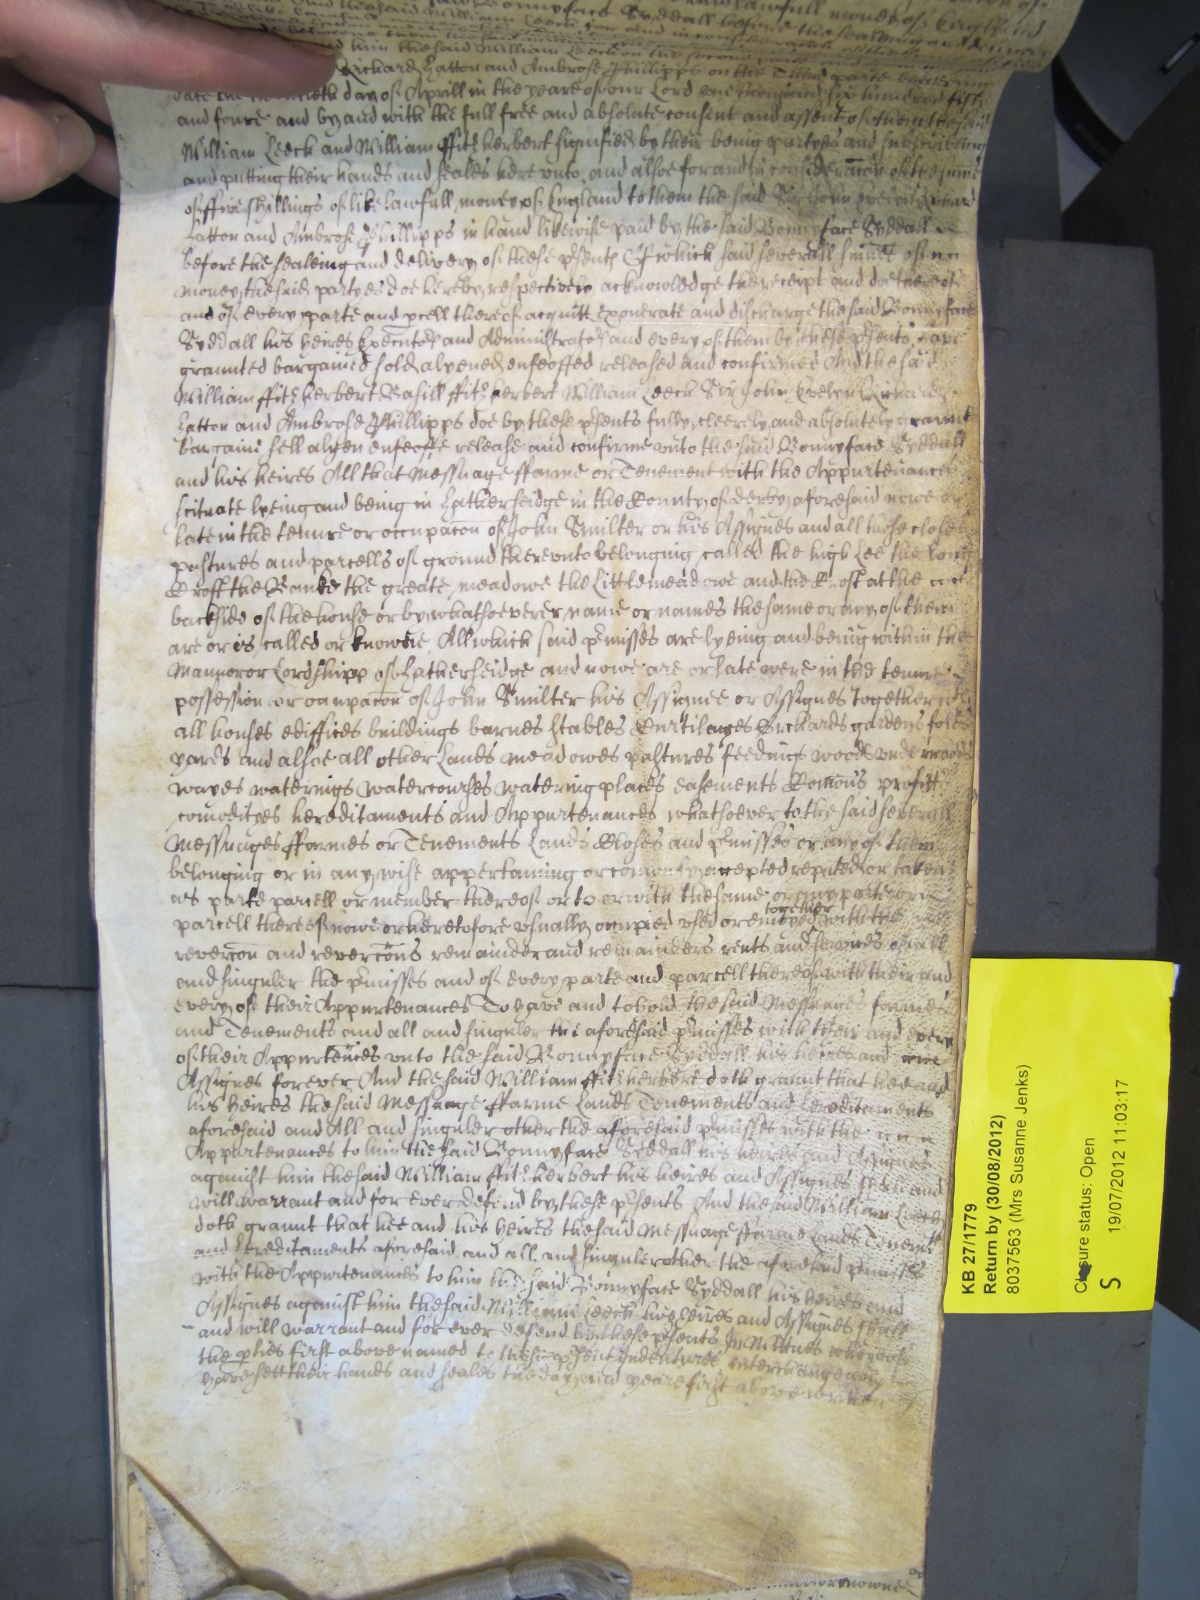 Bonnyface Syddall before the sealeing and delivery
him the said William Leeck on the second parte
Richard Hatton and Ambrose Phillipps on the Third parte beareing
date the day of Aprill in the yeare of our Lord one thousand six hundred fifty
and foure and by and with the full free and absolute consent and assent of them the said
William Leeck and William ffitzherbert signified by their being partyes and subscribeing
and putting their hands and seales herevnto, and alsoe for and in consideracon of the summe
of ffive shillings of like lawfull money of England to them the said Sir John Evelyn Richard
Hatton and Ambrose Phillipps in hand likewise paid by the said Bonnyface Syddall
before the sealeing and delivery of these p̃sents Of which said severall summes of
money the said partyes doe hereby respectively acknowledge the receipt and doe thereof
and of every parte and p̱cell thereof acquitt exonerate and discharge the said Bonnyface
Syddall his heires Executors and Administrators and every of them by these p̃sents, have
graunted bargained sold alyened enfeoffed released and confirmed And the said
William ffitzherbert Basill ffitzherbert William Leeck Sir John Evelyn Richard
Hatton and Ambrose Phillipps doe by these p̃sents fully cleerely and absolutely graunt
bargaine sell alyen enfeoffe release and confirme vnto the said Bonnyface Syddall
and his heires All that Messuage ffarme or Tenement with the Appurtenances
scituate lyeing and being in Hatherseidge in the County of derby aforesaid nowe or
late in the tenure or occupacon of John Smilter or his Assignes and all those closes
pastures and parcells of ground therevnto belonging called the high Lee the
Croft the Banke the greate meadowe the Little meadowe and the Croft at the
backside of the house or by whatsoever name or names the same or any of them
are or is called or knowne, All which said p̃misses are lyeing and being within the
Mannor or Lordshipp of Hatherseidge and nowe are or late were in the tenure
possession or occupacon of John Smilter his Assignee or Assignes together with
all houses ediffices buildings barnes stables Curtilages Orchards gardens foldes
yards and alsoe all other Lands meadowes pastures feedings woods vnderwoods
wayes waterings watercourses watering places easements Comons profitts
comodityes hereditaments and Appurtenances whatsoever to the said severall
Messuages ffarmes or Tenements Lands Closes and p̃misses or any of them
belonging or in any wise appertaining or comonly accepted reputed or taken
as parte parcell or member thereof or to or with the same or any parte or
parcell thereof nowe or heretofore vsually occupied vsed or enioyed together with the
revercon and revercons remainder and remainders rents and services of all
and singuler the p̃misses and of every parte and parcell thereof with their and
every of their Appurtenances To have and to hold the said Messuages farmes
and Tenements and all and singuler the aforesaid p̃misses with their and every
of their Appurtences vnto the said Bonnyface Syddall his heires and
Assignes forever And the said William ffitzherbert doth graunt that hee and
his heires the said Messuage ffarme Lands Tenements and hereditaments
aforesaid and All and singuler other the aforesaid p̃misses with the
Appurtenances to him the said Bonnyface Syddall his heires and Assignes
against him the said William ffitzherbert his heires and Assignes shall and
will warrant and for ever defend by these p̃sents And the said William Leeck
doth graunt that hee and his heires the said Messuage ffarme Lands Tenements
and hereditaments aforesaid and all and singuler other the aforesaid p̃misses
with the Appurtenances to him the said Bonnyface Syddall his heires and
Assignes against him the said William Leeck his heires and Assignes shall
and will warrant and for ever defend by these p̃sents In Wittnes whereof
the p̱ties first above named to these p̃sent Indentures interchangeably
have sett their hands and seales the day and yeare first above written
KB 27/1779
Return by (30/08/2012)
8037563 (Mrs Susanne Jenks)
Closure status: Open
S 19/07/2012 11:03:17